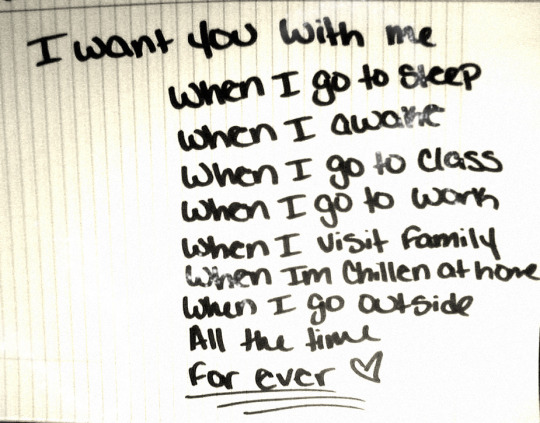 I want you with me
when I go to sleep
when I awake
when I go to class
when I go to work
when I visit family
when Im Chillen at home
when I go outside
All the time
for ever ♡